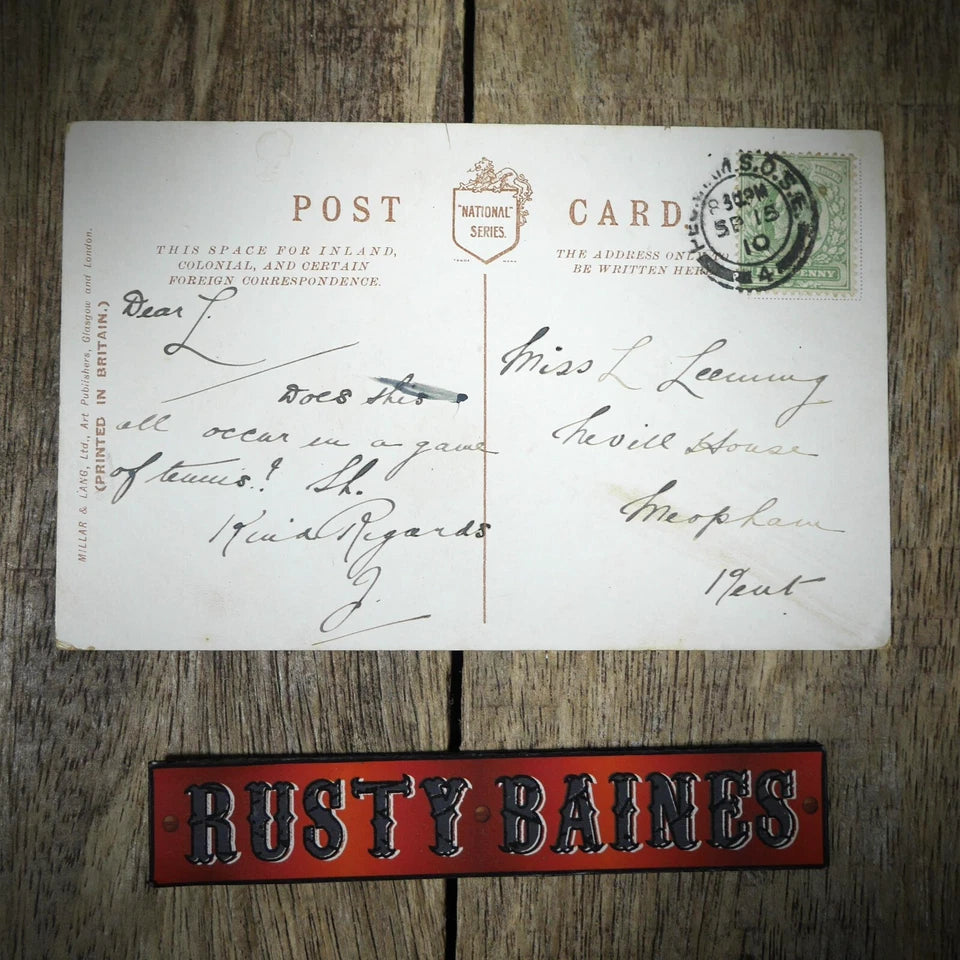 POST CARD
"NATIONAL"
SERIES.
THIS SPACE FOR INLAND,
COLONIAL, AND CERTAIN
FOREIGN CORRESPONDENCE.
THE ADDRESS ONL
BE WRITTEN HER
S.O.S.E.
8 30 PM
SP 15
10
4
PENNY
MILLAR & LANG, Ltd., Art Publishers, Glasgow and London.
(PRINTED IN BRITAIN.)
Dear L.
Does this
all occur in a game
of tennis? Sh.
Kind Regards
J.
Miss L Leeming
Nevill House
Meopham
Kent
RUSTY BAINES